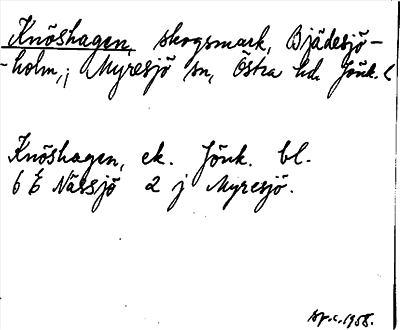 Knöshagen, skogsmark, Bjädesjö-
-holm, i Myresjö sn, Östra hd. Jönk. l
Knöshagen, ek. Jönk. bl.
6 E Nässjö 2 j Myresjö.
1958.